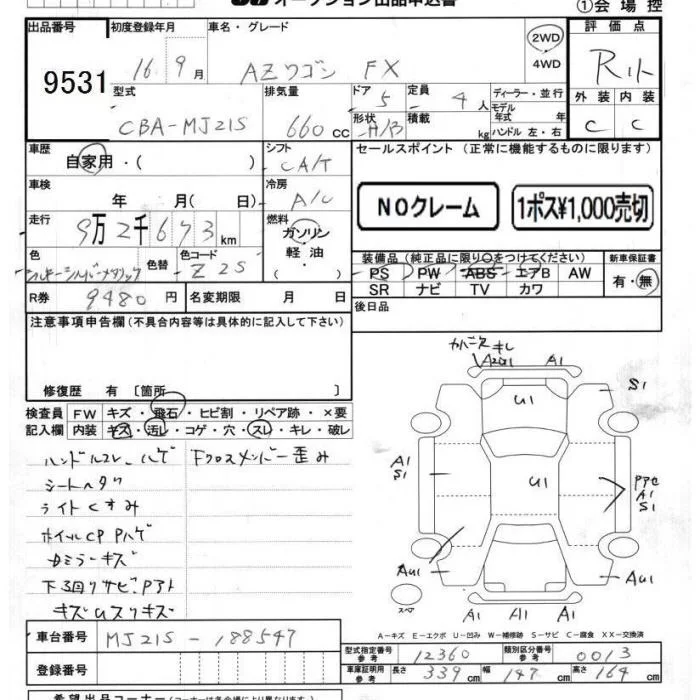 オークション出品申込書 ①会場控
出品番号 初度登録年月 車名・グレード 評価点
9531 16年 9月 AZワゴン FX 2WD 4WD R
型式 排気量 ドア 定員 ディーラー・並行 外装 内装
CBA-MJ21S 660cc 5 4人 モデル年式 年 C C
形状 H/B 積載 kg ハンドル 左・右
車歴 シフト セールスポイント (正常に機能するものに限ります)
自家用・( ) CA/T
車検 冷房 NOクレーム 1ポス¥1,000売切
年 月( 日) A/C
走行 燃料
9万2千673km ガソリン
軽油
( )
色 色替 色コード 装備品 (純正品に限り○をつけてください) 新車保証書
シルキーシルバーメタリック Z2S PS PW ABS エアB AW 有・無
SR ナビ TV カワ
R券 9480円 名変期限 月 日 後日品
注意事項申告欄(不具合内容等は具体的に記入して下さい)
修復歴 有〔箇所 〕
検査員 FW キズ・飛石・ヒビ割・リペア跡・×要
記入欄 内装 キズ・汚レ・コゲ・穴・スレ・キレ・破レ
ハンドルスレ、ハゲ Fクロスメンバー歪み
シートヘタリ
ライトくすみ
ホイルCP Pハゲ
カミラーキズ
下回りサビ、Pアト
キズUスリキズ
キレ
A201 A1
U1 S1
A1 S1 U1 A1 S1
AU1 AU1
スペア A1 A1 A1
A-キズ E-エクボ U-凹み W-補修跡 S-サビ C-腐食 XX-交換済
車台番号 MJ21S-188547
登録番号
型式指定番号 参考 12360 類別区分番号 参考 0013
車庫証明用 参考 長さ 339cm 幅 147cm 高さ 164cm
希望出品コーナー